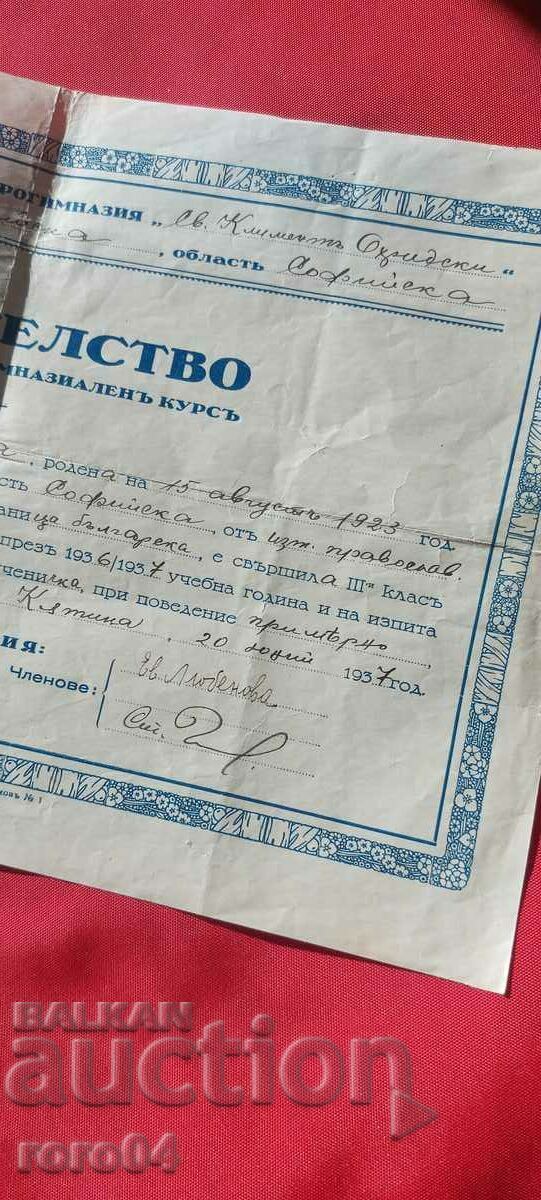 РОГИМНАЗИЯ „Св. Климентъ Охридски“
, область Софийска
ЕЛСТВО
МНАЗИАЛЕНЪ КУРСЪ
а, родена на 15 августъ 1923 год.
сть Софийска, отъ изт. православ.
аница българска, е свършила III класъ
презъ 1936/1937 учебна година и на изпита
ученичка, при поведение примѣрно,
Клтина, 20 юний 1937 год.
ИЯ:
Членове:
Ев. Любенова
Ст.
овъ № 1
BALKAN
auction
roro04